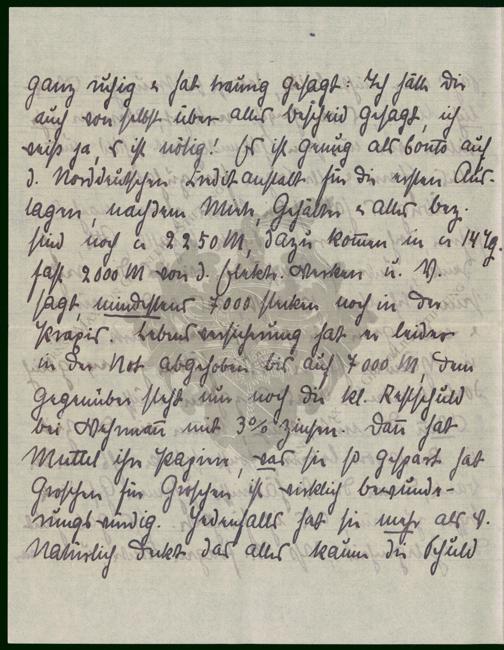 ganz ruhig & hat traurig gesagt: Ich hätte Dir
auch von selbst über alles bescheid gesagt, ich
weiß ja, es ist nötig! Es ist genug als Conto auf
d. Norddeutschen Creditanstalt für die ersten Aus-
lagen, nachdem Miete, Gehälter & alles bez.
sind noch ca 2250 M, dazu kommen in ca 14 Tg.
fast 2000 M von d. Elektr. Werken u. V.
sagt, mindestens 7000 stecken noch in der
Praxis. Lebensversicherung hat er leider
in der Not abgehoben bis auf 7000 M, dem
gegenüber steht nur noch die kl. Restschuld
bei Wehmann mit 3% Zinsen. Dann hat
Muttel ihre Papiere, was sie so gespart hat
Groschen für Groschen ist wirklich bewunde-
rungswürdig. Jedenfalls hat sie mehr als V.
Natürlich deckt das alles kaum die Schuld